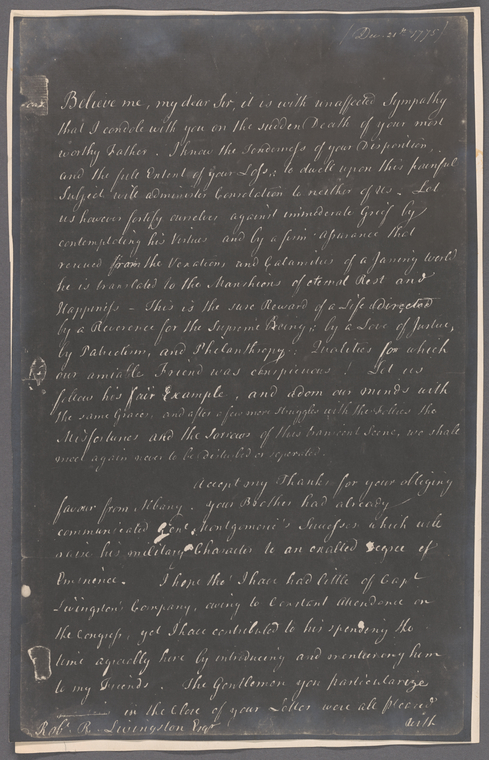 (Dec. 21st 1775)
Believe me, my dear Sir, it is with unaffected Sympathy
that I condole with you on the sudden Death of your most
worthy Father. I know the tenderness of your Disposition,
and the full Extent of your Loss; to dwell upon this painful
Subject will administer Consolation to neither of us. Let
us however fortify ourselves against immoderate Grief by
contemplating his Virtues and by a firm Assurance that
rescued from the Vexations and Calamities of a Jarring World
he is translated to the Manshions of eternal Rest and
Happiness – This is the sure Reward of a Life directed
by a Reverence for the Supreme Being; by a Love of Justice,
by Patriotism, and Philanthropy; Qualities for which
our amiable Friend was conspicuous! Let us
follow his fair Example, and adorn our minds with
the same Graces, and after a few more struggles with the Follies the
Misfortunes and the Sorrows of this transient Scene, we shall
meet again never to be disturbed or separated.
Accept my Thanks for your obliging
favour from Albany. your Brother had already
communicated Genl. Montgomerie's Successes which will
raise his military Character to an exalted Degree of
Eminence. I hope tho' I have had little of Capt
Livingston's Company, owing to Constant Attendance on
the Congress, yet I have contributed to his spending the
time agreably here by introducing and mentioning him
to my Friends. The Gentlemen you particularize
in the Close of your Letter were all pleased
Robt. R. Livingston Esqr with